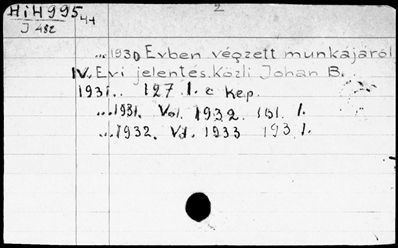 HiH995 44
J 482
2
...1930 Évben végzett munkájáról
IV. Évi jelentés. Közli Johan B.
1931. 127 l. c Kép.
...1931. Vol. 1932. 151 l.
...1932. Vol. 1933 193 l.